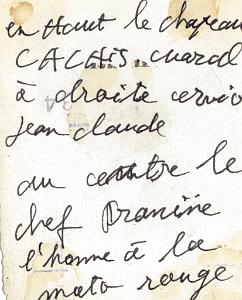 en Haut le chapeau
CACHIS marcel
à droite
Jean claude
au centre le
chef Branine
l'homme à la
moto rouge